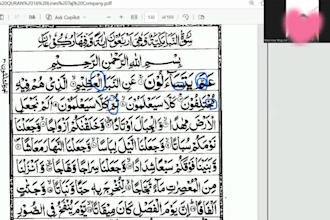 %20QURAN%2016%20Lines%20Taj%20Company.pdf
سورة النبا مكية وهي اربعون اية وفيها ركوعان
بسم الله الرحمن الرحيم
عم يتساءلون عن النبا العظيم الذي هم فيه
مختلفون كلا سيعلمون ثم كلا سيعلمون الم نجعل
الارض مهدا والجبال اوتادا وخلقنكم ازواجا وجعلنا
نومكم سباتا وجعلنا اليل لباسا وجعلنا النهار معاشا
وبنينا فوقكم سبعا شدادا وجعلنا سراجا وهاجا وانزلنا
من المعصرت ماء ثجاجا لنخرج به حبا ونباتا وجنت
الفافا ان يوم الفصل كان ميقاتا يوم ينفخ في الصور